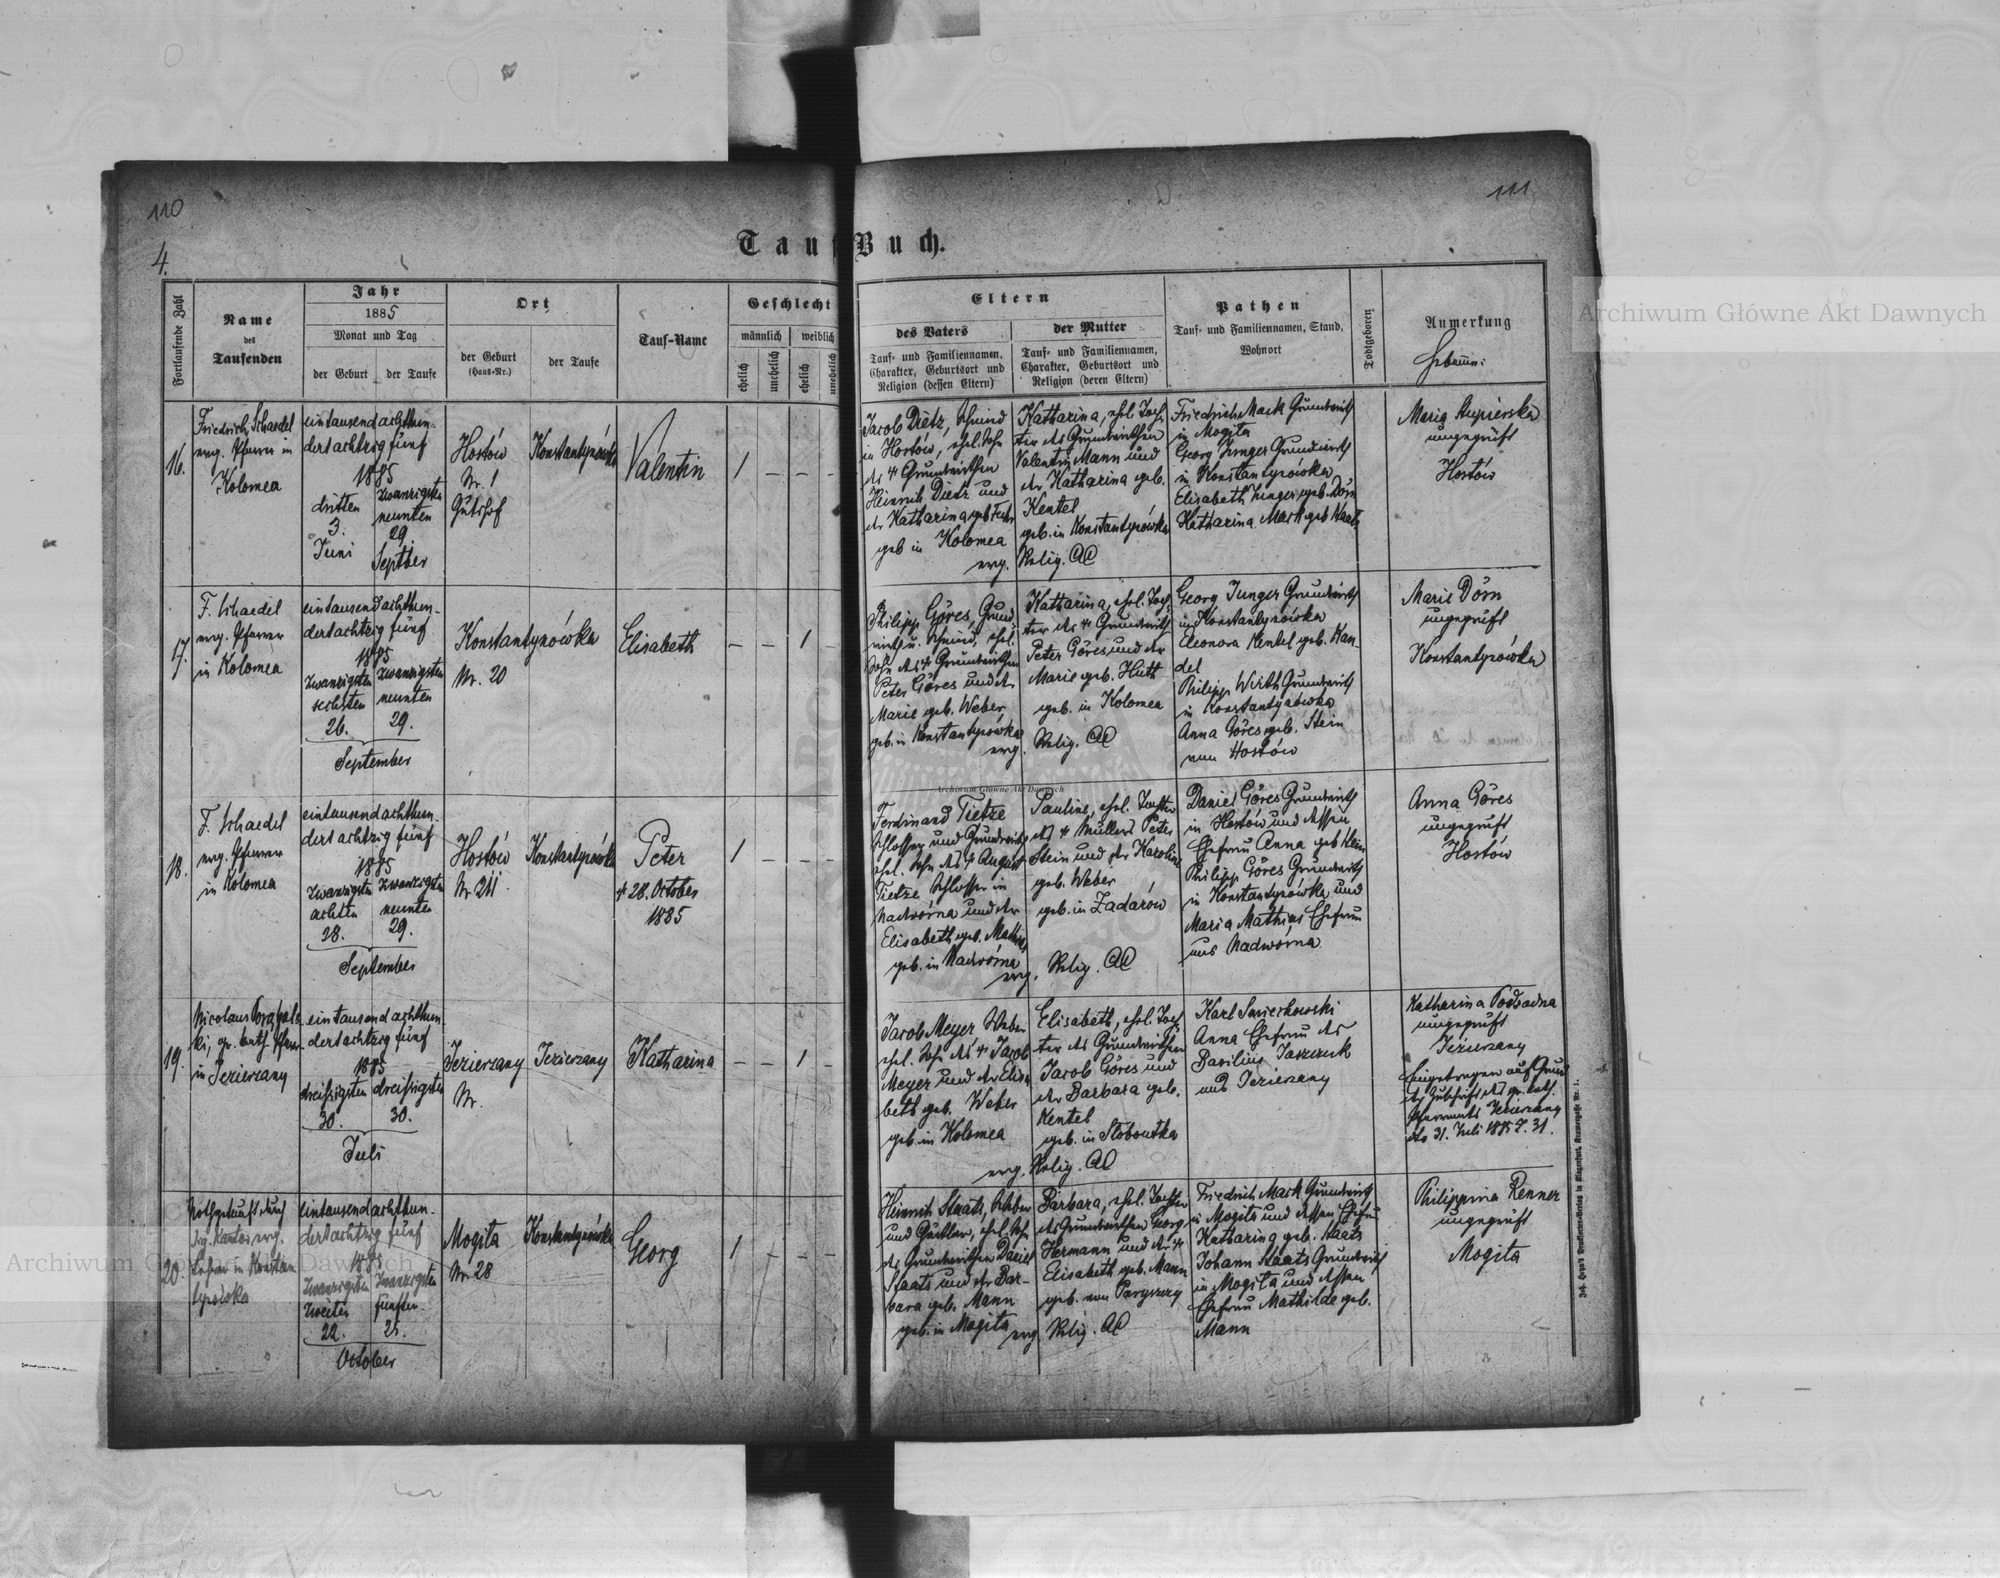 110
111
4.
Tauf-Buch.
Fortlaufende Zahl
Name
des
Taufenden
Jahr
1885
Monat und Tag
der Geburt
der Taufe
Ort
der Geburt
(Haus-Nr.)
der Taufe
Tauf-Name
Geschlecht
männlich
weiblich
ehelich
unehelich
ehelich
unehelich
Eltern
des Vaters
Tauf- und Familiennamen,
Charakter, Geburtsort und
Religion (dessen Eltern)
der Mutter
Tauf- und Familiennamen,
Charakter, Geburtsort und
Religion (deren Eltern)
Pathen
Tauf- und Familiennamen, Stand,
Wohnort
Todtgeboren
Anmerkung
Hebamme:
16.
Friedrich Schaedel
evg. Pfarrer in
Kolomea
eintausendachthun-
dertachtzig fünf
1885
dritten
3.
Juni
zwanzigsten
neunten
29
Septber
Hostów
Nr. 1
Gutshof
Konstantynówka
Valentin
1 – – –
Jacob Dietz, Schmied
in Hostów, ehel. Sohn
des † Grundwirthen
Heinrich Dietz und
der Katharina geb.
geb in Kolomea
evg.
Katharina, ehel. Toch-
ter des Grundwirthen
Valentin Mann und
der Katharina geb.
Kentel
geb. in Konstantynówka
Relig. AC
Friedrich Mack Grundwirth
in Mogita
Georg Junger Grundwirth
in Konstantynówka
Elisabeth Junger, geb. Dörn
Katharina Mack geb Staats
Maria Stupierska
ungeprüft
Hostów
17.
F. Schaedel
evg. Pfarrer
in Kolomea
eintausendachthun-
dertachtzig fünf
1885
zwanzigsten
sechsten
26.
zwanzigsten
neunten
29.
September
Konstantynówka
Nr. 20
Elisabeth
– – 1 –
Philipp Göres, Grund-
wirth u. Schmied, ehel.
Sohn des † Grundwirthen
Peter Göres und der
Marie geb. Weber
geb. in Konstantynówka
evg.
Katharina, ehel. Toch-
ter des † Grundwirth
Peter Göres und der
Marie geb. Huth
geb. in Kolomea
Relig. AC
Georg Junger Grundwirth
in Konstantynówka
Eleonora Kentel geb. Kan-
del
Philipp Wirth Grundwirth
in Konstantynówka
Anna Göres geb. Stein
von Hostów
Marie Dörn
ungeprüft
Konstantynówka
18.
F. Schaedel
evg. Pfarrer
in Kolomea
eintausendachthun-
dertachtzig fünf
1885
zwanzigsten
achten
28.
zwanzigsten
neunten
29.
September
Hostów
Konstantynówka
Peter
† 28. October
1885
1 – – –
Ferdinand Tietze
Schlosser und Grundwirth
ehel. Sohn des † August
Tietze Schlosser in
Nadwórna und der
Elisabeth geb. Mathias
geb. in Nadwórna
evg.
Pauline, ehel. Tochter
des † Müllers Peter
Stein und der Karoline
geb. Weber
geb. in Zadarów
Relig. AC
Daniel Göres Grundwirth
in Hostów und dessen
Ehefrau Anna geb Stein
Philipp Göres Grundwirth
in Konstantynówka und
Maria Mathias Ehefrau
aus Nadwórna
Anna Göres
ungeprüft
Hostów
19.
Nicolaus
ki, gr. kath. Pfarrer
in Jezierzany
eintausendachthun-
dertachtzig fünf
1885
dreißigsten
30.
dreißigsten
30.
Juli
Jezierzany
Nr.
Jezierzany
Katharina
– – 1 –
Jacob Meyer Weber
ehel. Sohn des † Jacob
Meyer und der Elisa-
beth geb. Weber
geb. in Kolomea
evg.
Elisabeth, ehel. Toch-
ter des Grundwirthen
Jacob Göres und
der Barbara geb.
Kentel
geb. in Sloboutka
Relig. AC
Karl Smiechowski
Anna Ehefrau des
Basilius Jaszczuk
aus Jezierzany
Katharina Podsadna
ungeprüft
Jezierzany
Eingetragen auf Grund
der Zuschrift des gr. kath.
Pfarramts Jezierzany
dto 31. Juli 1885 Z. 31.
20.
Nothgetauft durch
Sig. Kantor, evg.
Lehrer in Konstan-
tynówka
eintausendachthun-
dertachtzig fünf
1885
zwanzigsten
zweiten
22.
zwanzigsten
fünften
25.
October
Mogita
Nr. 28
Konstantynówka
Georg
1 – – –
Heinrich Staats, Weber
ehel. Sohn
des Grundwirthen Daniel
Staats und der Bar-
bara geb. Mann
geb. in Mogita
evg
Barbara, ehel. Tochter
des Grundwirthen Georg
Hermann und der †
Elisabeth geb. Mann
geb. von Paryszcze
Relig. AC
Friedrich Mack Grundwirth
in Mogita und dessen Ehefrau
Katharina geb. Staats
Johann Staats Grundwirth
in Mogita und dessen
Ehefrau Mathilde geb.
Mann
Philippina Renner
ungeprüft
Mogita
Archiwum Główne Akt Dawnych
Archiwum Główne Akt Dawnych
Archiwum Główne Akt Dawnych